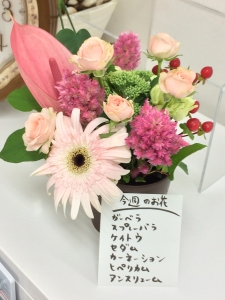 今週のお花
ガーベラ
スプレーバラ
ケイトウ
セダム
カーネーション
ヒペリカム
アンスリューム